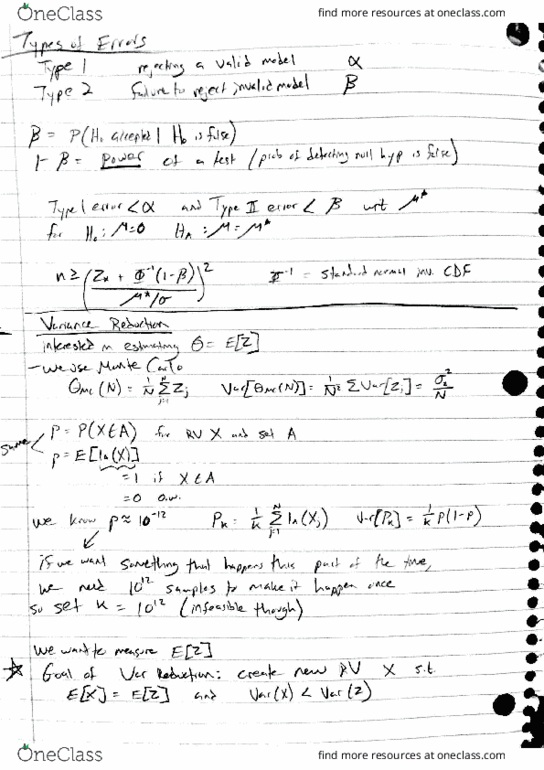 OneClass
find more resources at oneclass.com
Types of Errors
Type 1 rejecting a valid model α
Type 2 failure to reject invalid model β
β = P(H₀ accepted | H₀ is false)
1-β = power of a test (prob of detecting null hyp is false)
Type 1 error < α and Type II error < β wrt μ*
for H₀: μ=0 Hₐ: μ=μ*
n ≥ ((Zα + Φ⁻¹(1-β)) / (μ*/σ))² Φ⁻¹ = standard normal inv. CDF
Variance Reduction
interested in estimating θ = E[Z]
- we use Monte Carlo
θmc(N) = 1/N Σ Zj Var[θmc(N)] = 1/N² Σ Var[Zj] = σz²/N
same < p = P(X∈A) for RV X and set A
p = E[1A(X)]
=1 if X∈A
=0 o.w.
we know p ≈ 10⁻¹² Pk = 1/k Σ 1A(Xj) Var[Pk] = 1/k p(1-p)
if we want something that happens this part of the time,
we need 10¹² samples to make it happen once
so set k = 10¹² (infeasible though)
we want to measure E[Z]
Goal of Var Reduction: create new RV X s.t.
E[X] = E[Z] and Var(X) < Var(Z)
OneClass
find more resources at oneclass.com